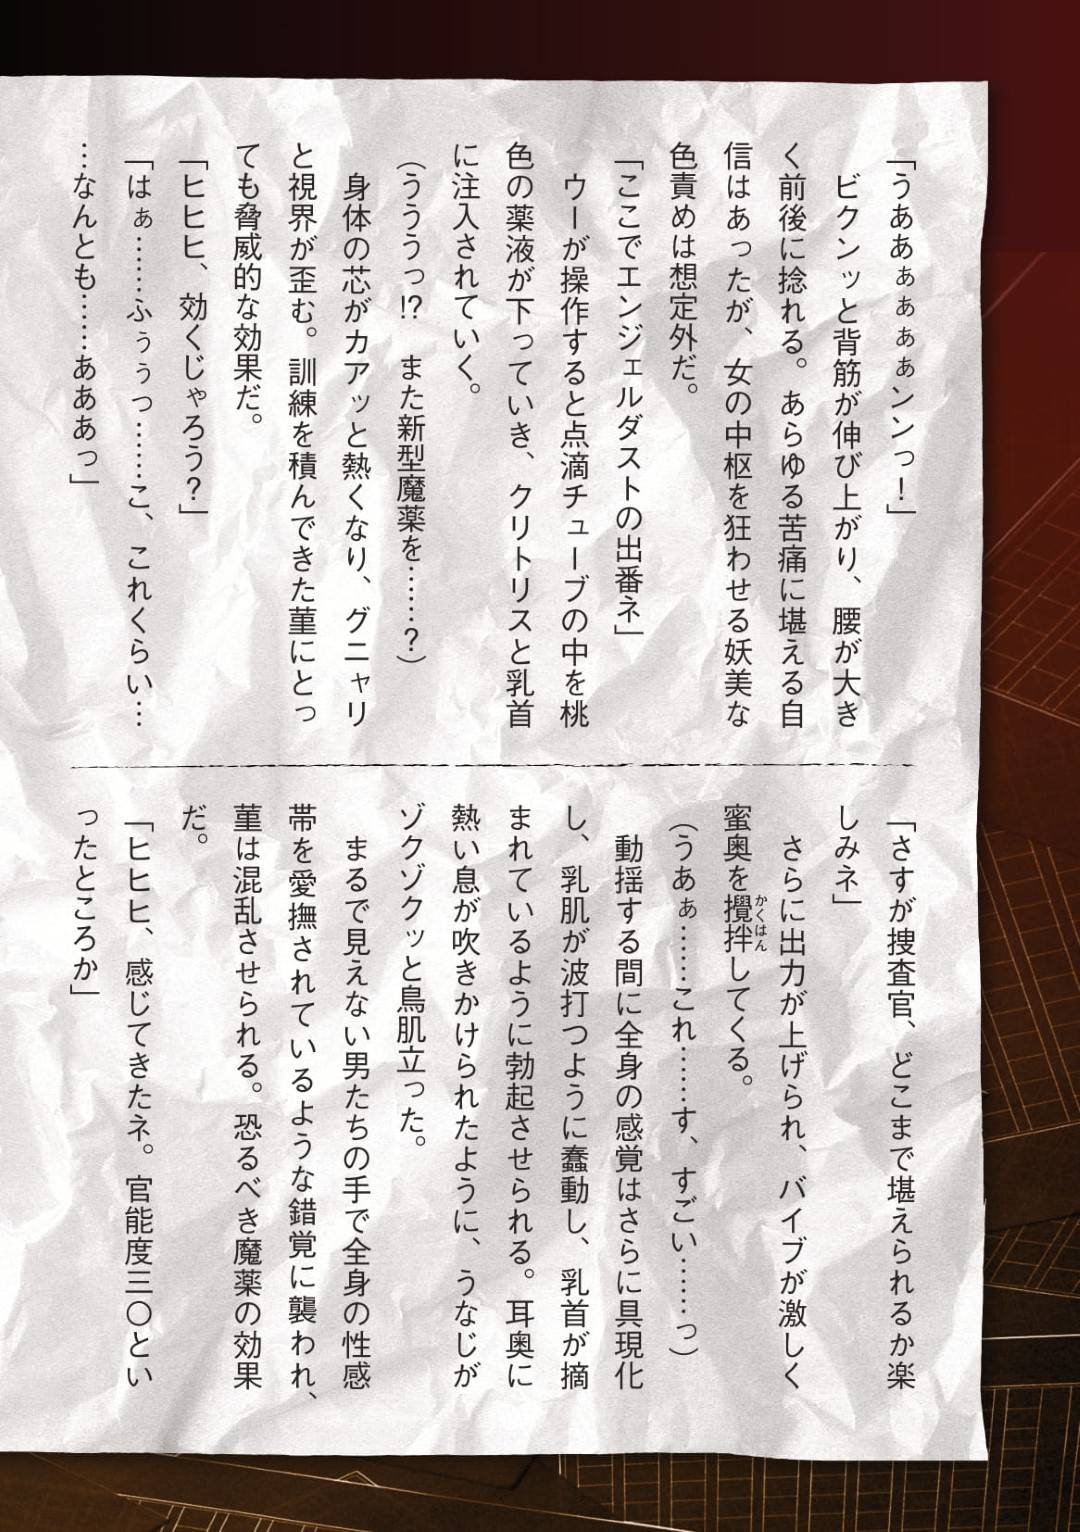 「うああぁぁぁぁンンっ！」
　ビクンッと背筋が伸び上がり、腰が大き
く前後に捻れる。あらゆる苦痛に堪える自
信はあったが、女の中枢を狂わせる妖美な
色責めは想定外だ。
「ここでエンジェルダストの出番ネ」
　ウーが操作すると点滴チューブの中を桃
色の薬液が下っていき、クリトリスと乳首
に注入されていく。
（うううっ!?　また新型魔薬を……？）
　身体の芯がカアッと熱くなり、グニャリ
と視界が歪む。訓練を積んできた菫にとっ
ても脅威的な効果だ。
「ヒヒヒ、効くじゃろう？」
「はぁ……ふぅぅっ……こ、これくらい…
…なんとも……あああっ」
「さすが捜査官、どこまで堪えられるか楽
しみネ」
　さらに出力が上げられ、バイブが激しく
蜜奥を攪拌してくる。
かくはん
（うあぁ……これ……す、すごい……っ）
　動揺する間に全身の感覚はさらに具現化
し、乳肌が波打つように蠢動し、乳首が摘
まれているように勃起させられる。耳奥に
熱い息が吹きかけられたように、うなじが
ゾクゾクッと鳥肌立った。
　まるで見えない男たちの手で全身の性感
帯を愛撫されているような錯覚に襲われ、
菫は混乱させられる。恐るべき魔薬の効果
だ。
「ヒヒヒ、感じてきたネ。官能度三〇とい
ったところか」